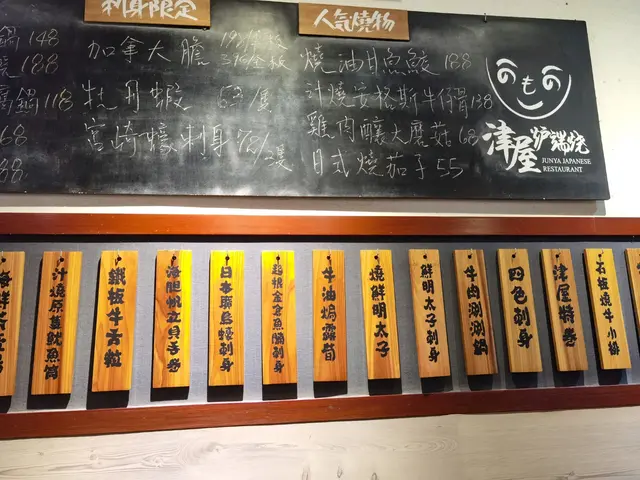 刺身限定
人氣燒物
鍋 148
188
鍋 118
68
88.
加拿大膽
牡丹蝦 63/隻
宮崎蠔刺身 78/隻
燒油甘魚鮫 188
汁燒安格斯牛仔骨 138
雞肉釀大蘑菇 68
日式燒茄子 55
のもの
津屋 炉端焼
JUNYA JAPANESE
RESTAURANT
海鮮
汁燒原隻魷魚筒
鐵板牛方粒
海胆帆立貝手卷
日本廣島蠔刺身
牛油焗露荀
燒鮮明太子
鮮明太子刺身
牛肉涮涮鍋
四色刺身
津屋特卷
石板燒牛小排